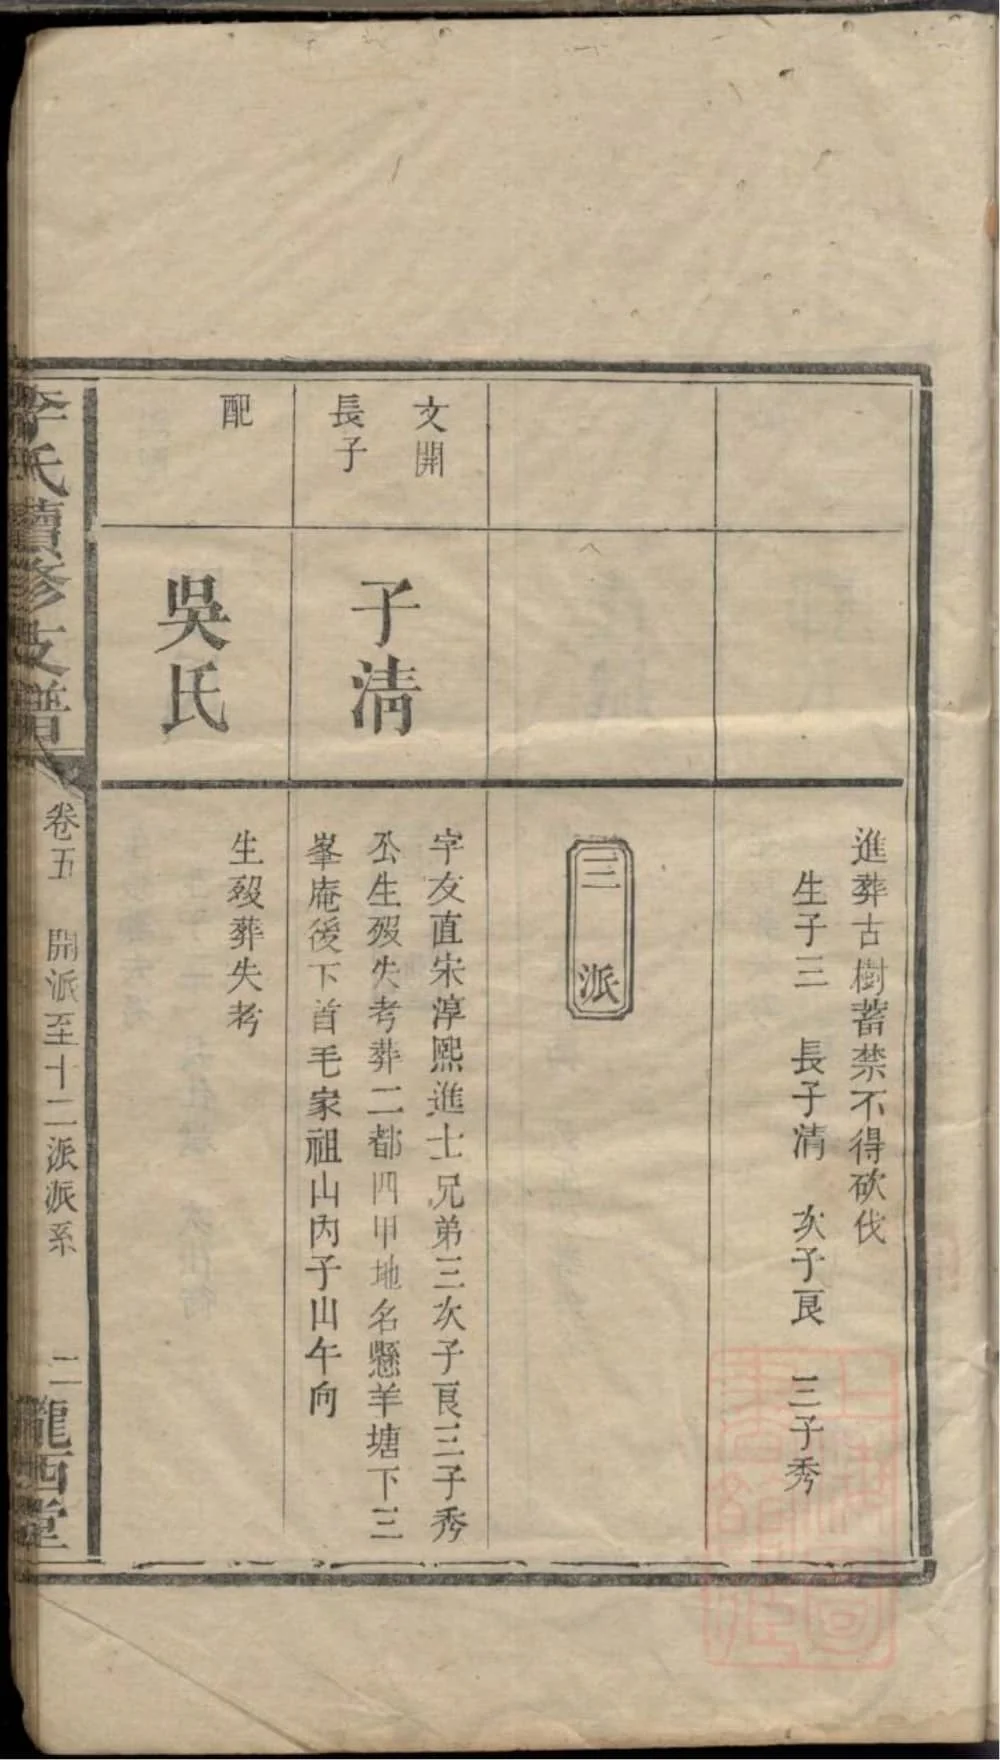 進葬古樹蓄禁不得砍伐
生子三 長子清 次子良 三子秀
三派
文開
長子
子清
字友直宋淳熙進士兄弟三次子良三子秀
公生歿失考葬二都四甲地名懸羊塘下三
峯庵後下首毛家祖山丙子山午向
配
吳氏
生歿葬失考
李氏續修支譜
卷五 開派至十二派派系 二
隴西堂